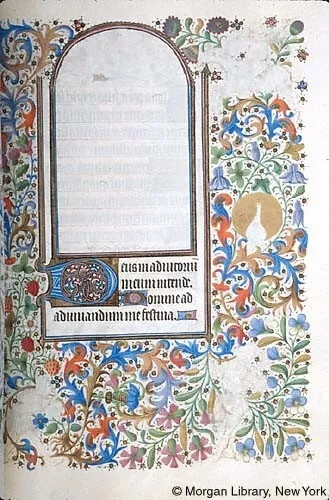 Deus in adiutoriu
meum intende.
Domine ad
adiuuandum me festina.
© Morgan Library, New York